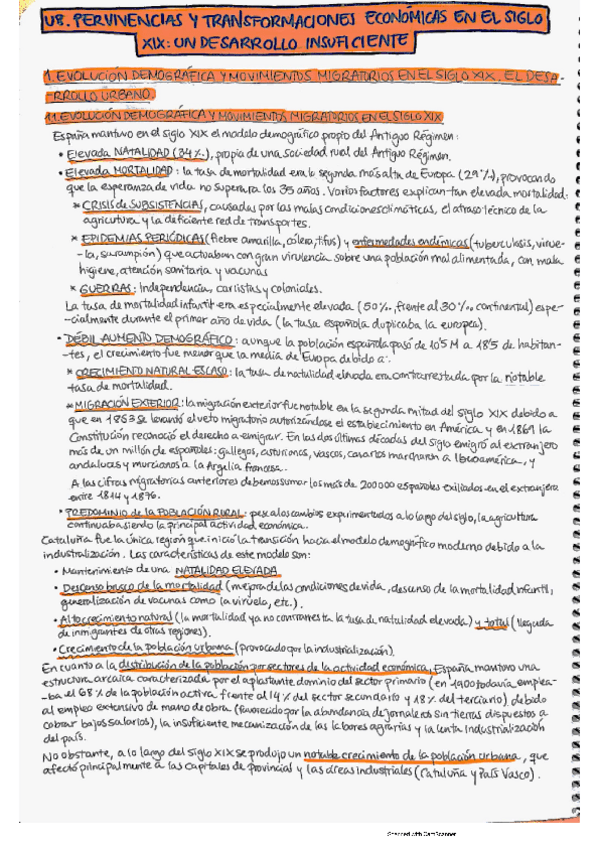 U8. PERVIVENCIAS Y TRANSFORMACIONES ECONÓMICAS EN EL SIGLO
XIX: UN DESARROLLO INSUFICIENTE
1. EVOLUCIÓN DEMOGRÁFICA Y MOVIMIENTOS MIGRATORIOS EN EL SIGLO XIX. EL DESA-
RROLLO URBANO.
1.1. EVOLUCIÓN DEMOGRÁFICA Y MOVIMIENTOS MIGRATORIOS EN EL SIGLO XIX
España mantuvo en el siglo XIX el modelo demográfico propio del Antiguo Régimen:
• Elevada NATALIDAD (34%.), propia de una sociedad rural del Antiguo Régimen.
• Elevada MORTALIDAD: la tasa de mortalidad era la segunda más alta de Europa (29%), provocando
que la esperanza de vida no superara los 35 años. Varios factores explican tan elevada mortalidad:
* CRISIS de SUBSISTENCIAS, causadas por las malas condiciones climáticas, el atraso técnico de la
agricultura y la deficiente red de transportes.
* EPIDEMIAS PERIÓDICAS (fiebre amarilla, cólera, tifus) y enfermedades endémicas (tuberculosis, virue-
-la, sarampión) que actuaban con gran virulencia sobre una población mal alimentada, con mala
higiene, atención sanitaria y vacunas
* GUERRAS: Independencia, carlistas y coloniales.
La tasa de mortalidad infantil era especialmente elevada (50‰, frente al 30‰ continental) espe-
-cialmente durante el primer año de vida (la tasa española duplicaba la europea).
• DÉBIL AUMENTO DEMOGRÁFICO: aunque la población española pasó de 10'5 M a 18'5 de habitan-
-tes, el crecimiento fue menor que la media de Europa debido a:
* CRECIMIENTO NATURAL ESCASO: la tasa de natalidad elevada era contrarrestada por la notable
tasa de mortalidad.
* MIGRACIÓN EXTERIOR: la migración exterior fue notable en la segunda mitad del siglo XIX debido a
que en 1853 se levantó el veto migratorio autorizándose el establecimiento en América y en 1869 la
Constitución reconoció el derecho a emigrar. En las dos últimas décadas del siglo emigró al extranjero
más de un millón de españoles: gallegos, asturianos, vascos, canarios marcharon a Iberoamérica, y
andaluces y murcianos a la Argelia francesa.
A las cifras migratorias anteriores debemos sumar los más de 200000 españoles exiliados en el extranjero
entre 1814 y 1876.
• PREDOMINIO de la POBLACIÓN RURAL: pese a los cambios experimentados a lo largo del siglo, la agricultura
continuaba siendo la principal actividad económica.
Cataluña fue la única región que inició la transición hacia el modelo demográfico moderno debido a la
industrialización. Las características de este modelo son:
• Mantenimiento de una NATALIDAD ELEVADA
• Descenso brusco de la mortalidad (mejora de las condiciones de vida, descenso de la mortalidad infantil,
generalización de vacunas como la viruela, etc.).
• Alto crecimiento natural (la mortalidad ya no contrarresta la tasa de natalidad elevada) y total (llegada
de inmigrantes de otras regiones).
• Crecimiento de la población urbana (provocado por la industrialización).
En cuanto a la distribución de la población por sectores de la actividad económica, España mantuvo una
estructura arcaica caracterizada por el aplastante dominio del sector primario (en 1900 todavía emplea-
-ba el 68% de la población activa, frente al 14% del sector secundario y 18% del terciario) debido
al empleo extensivo de mano de obra (favorecido por la abundancia de jornaleros sin tierras dispuestos a
cobrar bajos salarios), la insuficiente mecanización de las labores agrarias y la lenta industrialización
del país.
No obstante, a lo largo del siglo XIX se produjo un notable crecimiento de la población urbana, que
afectó principalmente a las Capitales de provincia y las áreas industriales (Cataluña y País Vasco).
Scanned with CamScanner